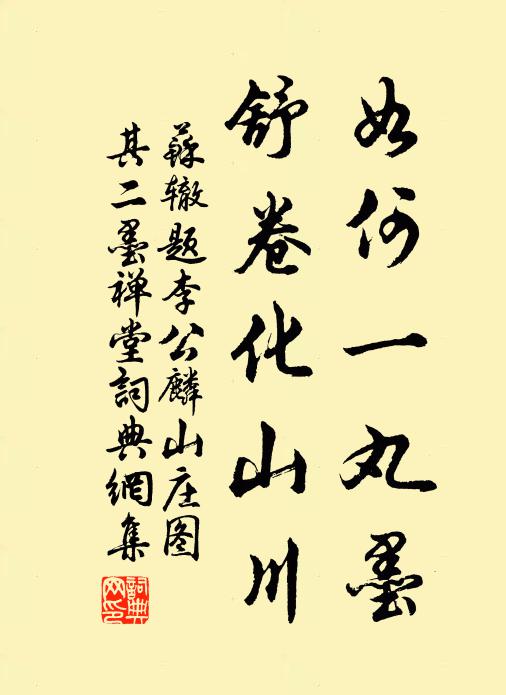 如何一丸墨
舒卷化山川
蘇辙题李公麟山庄图
其二墨禅堂詞典網集
詞典网印